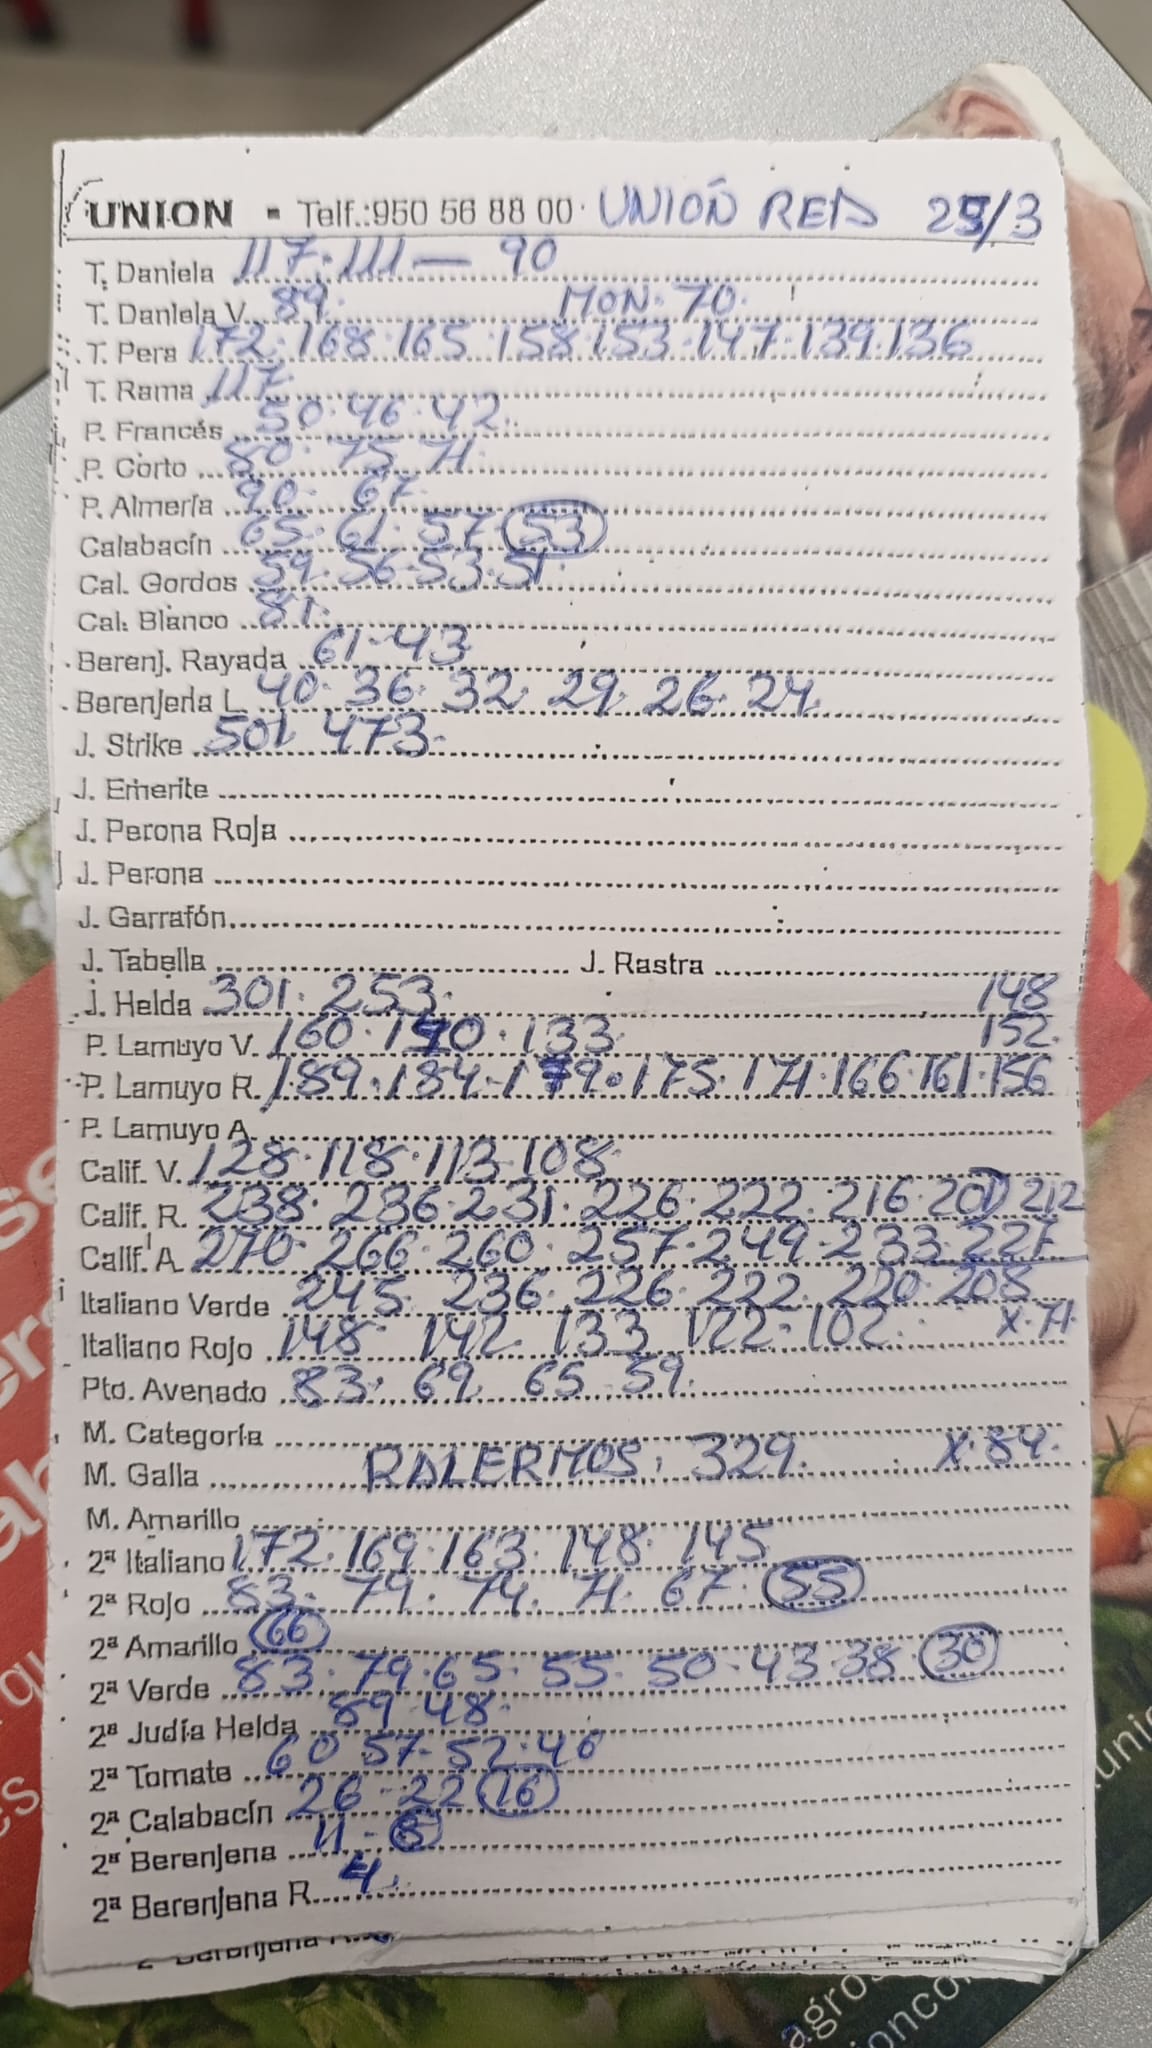 UNION - Telf.:950 56 88 00 UNIÓN RED 25/3
T. Daniela 117·111 — 90
T. Daniela V. 89· MON· 70·
T. Pera 172·168·165·158·153·147·139·136
T. Rama 117
P. Francés 50·46·42
P. Corto 80·75·71·
P. Almería 90· 67
Calabacín 65·61·57·53
Cal. Gordos 59·56·53·51
Cal. Blanco 81
Berenj. Rayada 61-43
Berenjena L. 40·36·32·29·26·24
J. Strike 501 473·
J. Emerite
J. Perona Roja
J. Perona
J. Garrafón
J. Tabella J. Rastra
J. Helda 301·253· 148
P. Lamuyo V. 160· ·133 152·
P. Lamuyo R. 189·184·179·175·171·166·161·156
P. Lamuyo A.
Calif. V. 128·118·113·108·
Calif. R. 238·236·231·226·222·216· 212
Calif. A. 270·266·260·257·249-233·227
Italiano Verde 245·236·226·222·220·208
Italiano Rojo 148·142·133 122·102· X·71·
Pto. Avenado 83·69 65 59·
M. Categoría
M. Galla PALERMOS· 329· X·84·
M. Amarillo
2ª Italiano 172·169·163·148·145
2ª Rojo 83·79·74·71·67·55
2ª Amarillo 66
2ª Verde 83·79·65·55·50·43·38 30
2ª Judía Helda 89·48·
2ª Tomate 60 57-52·46
2ª Calabacín 26-22 16
2ª Berenjena 11-
2ª Berenjena R. 4